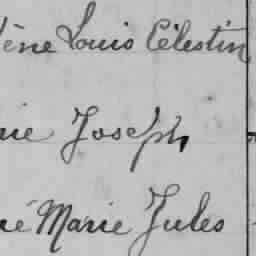 ène Louis Célestin
ie Joseph
é Marie Jules